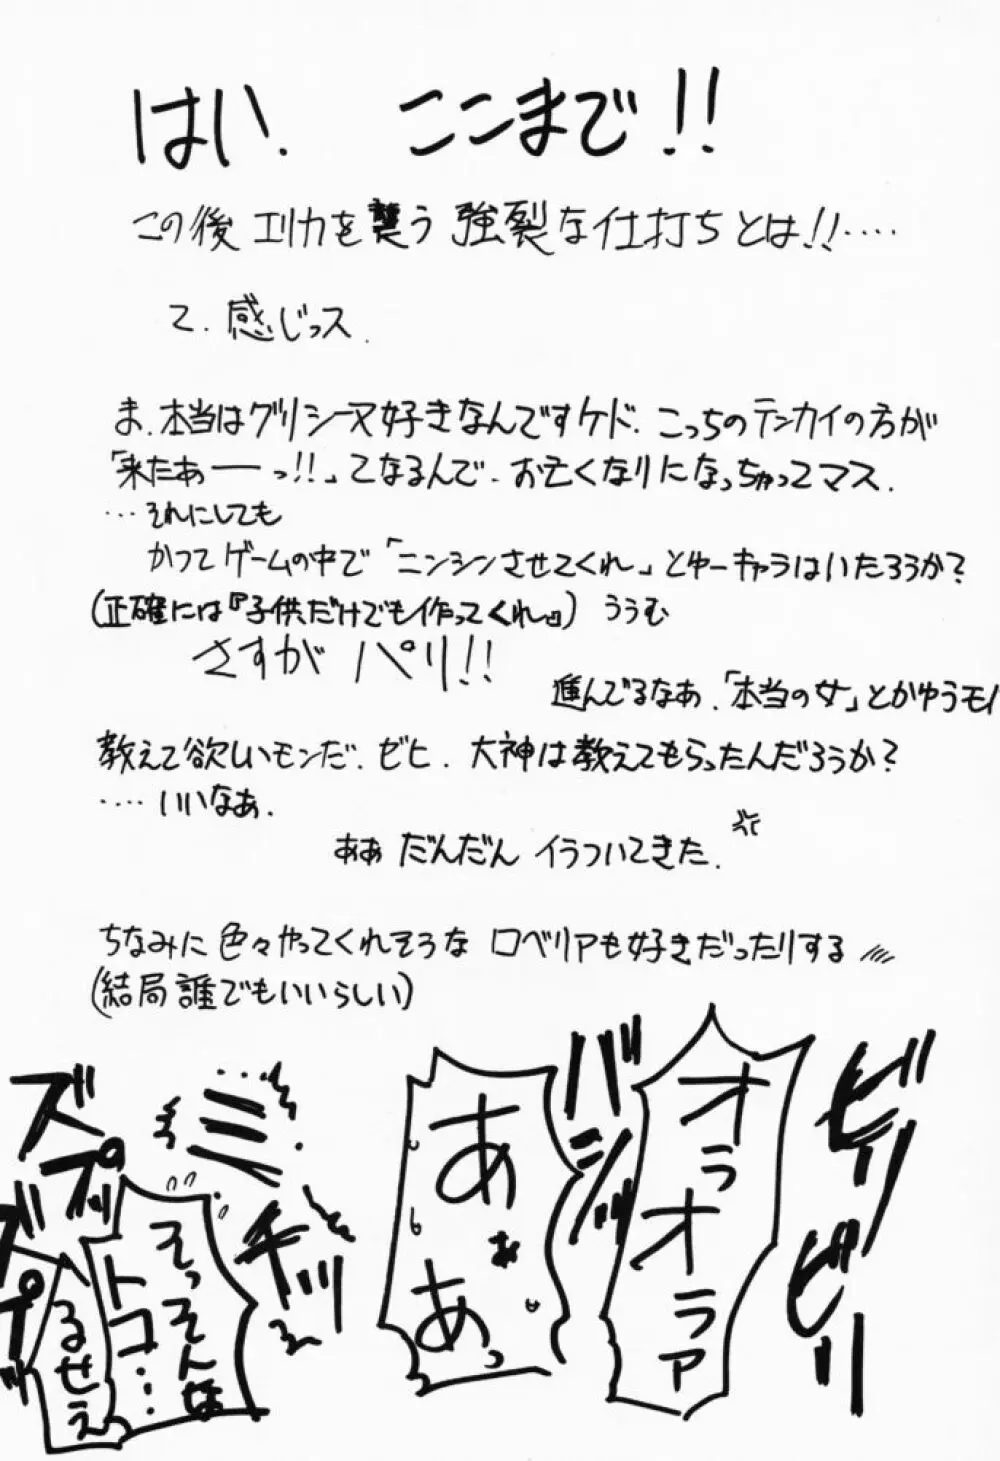 はい、ここまで!!
この後エリカを襲う強裂な仕打ちとは!!‥‥
て、感じっス.
ま、本当はグリシーヌ好きなんですケド、こっちのテンカイの方が
「来たあーっ!!」てなるんで、お亡くなりになっちゃってマス.
…それにしても
かつてゲームの中で「ニンシンさせてくれ」とゆーキャラはいたろうか?
(正確には『子供だけでも作ってくれ』)ううむ
さすがパリ!!
進んでるなあ、「本当の女」とかゆうモノ
教えて欲しいモンだ、ゼヒ、大神は教えてもらったんだろうか?
‥‥いいなあ.
ああ だんだん イラついてきた.
ちなみに色々やってくれそうな ロベリアも好きだったりする
(結局誰でもいいらしい)
ビリ
ビリ
オラオラァ
バシッ
あぁあっ
ミチッ
そっそんな
トコ…
るせえ
ズプ
ズプ